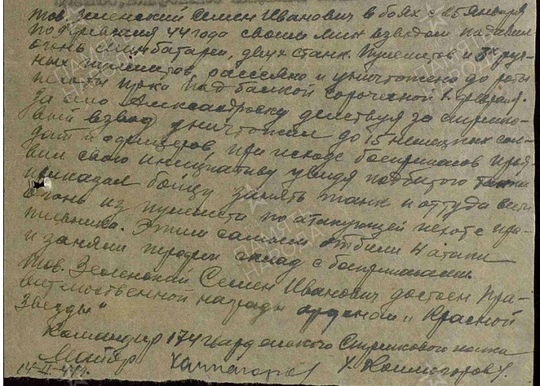 тов. Зеленский Семен Иванович в боях с 25 января
по февраля 44 года своим мин взводом подавил
огонь мин батареи, двух станк. пулеметов 3х руч-
ных пулеметов, рассеяно и уничтожено до роты
пехоты пр-ка под балкой
За село Александровку действуя за стрелко-
вый взвод уничтожил до 15 немецких сол-
дат и офицеров, при исходе боеприпасов проя-
вил свою инициативу увидя подбитого танка
приказал бойцу занять танк и оттуда вести
огонь из пулемета по атакующей пехоте про-
тивника. Этим самым отбили 4 атаки
и заняли трофеи склад с боеприпасами.
Тов. Зеленский Семен Иванович достоен пра-
вительственной награды орденом "Красной
Звезды"
Командир 174 гвардейского Стрелкового полка
Майор
14-II-44г.